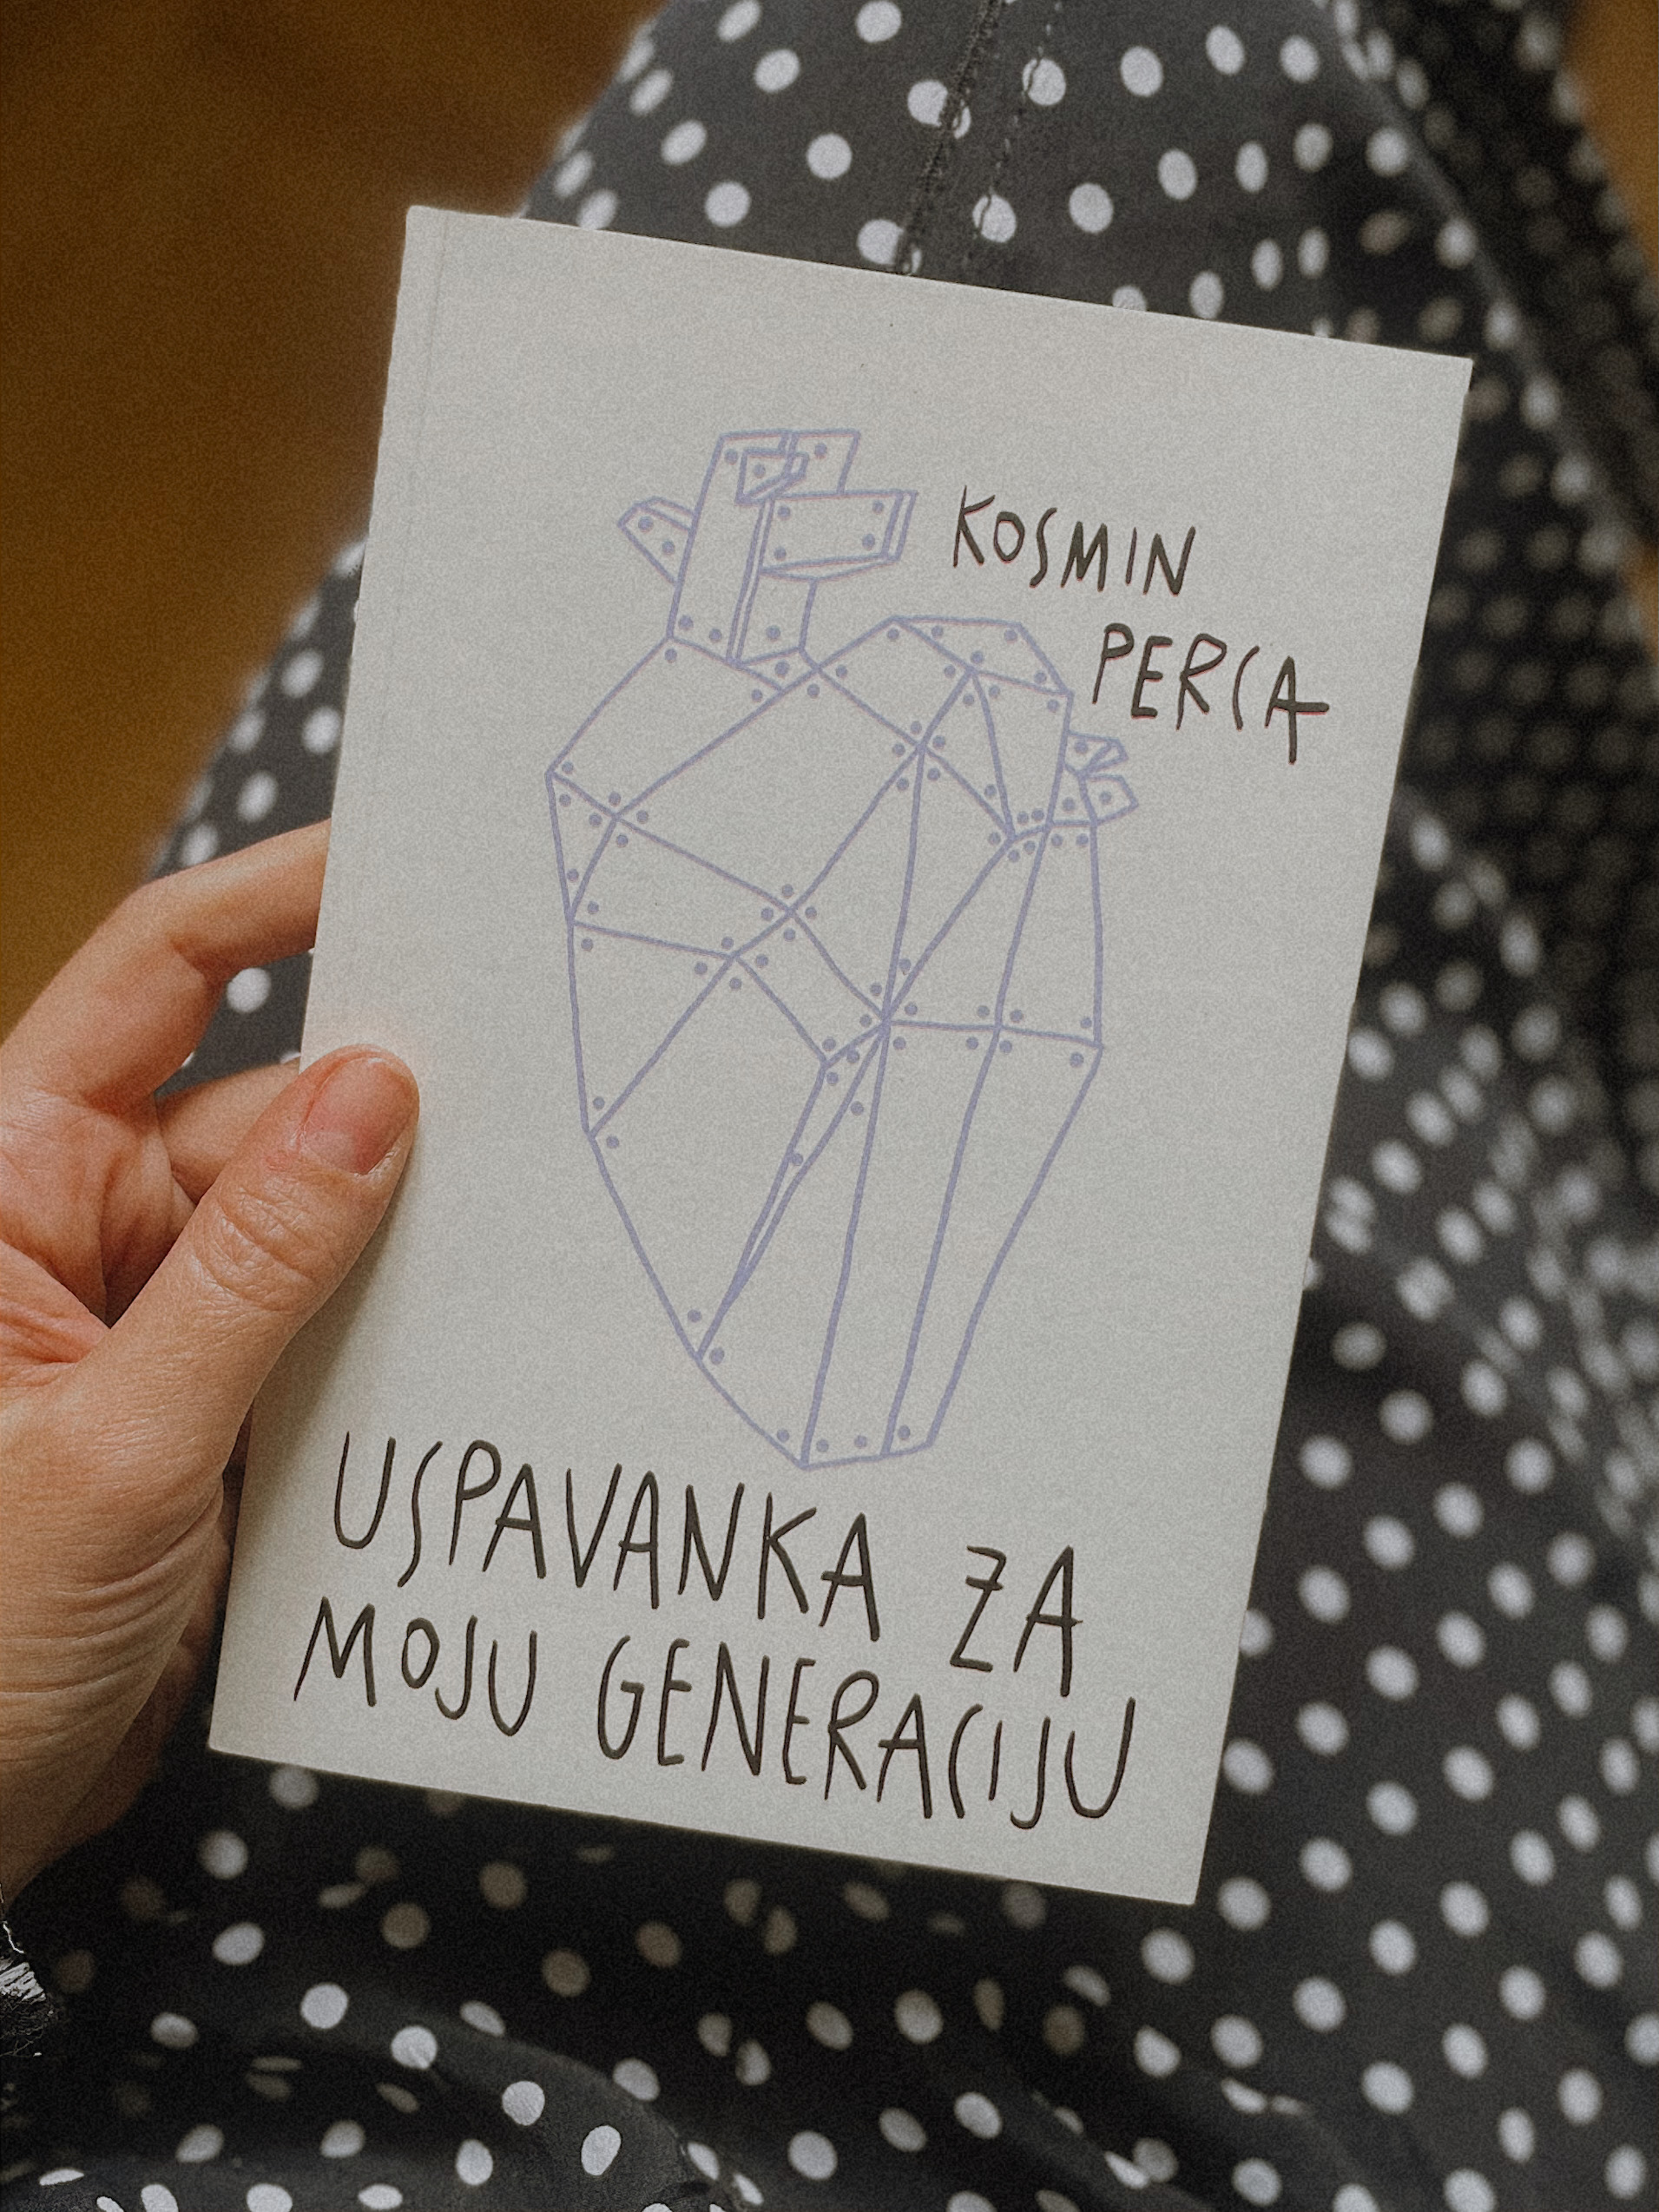 KOSMIN
PERCA
USPAVANKA ZA
MOJU GENERACIJU